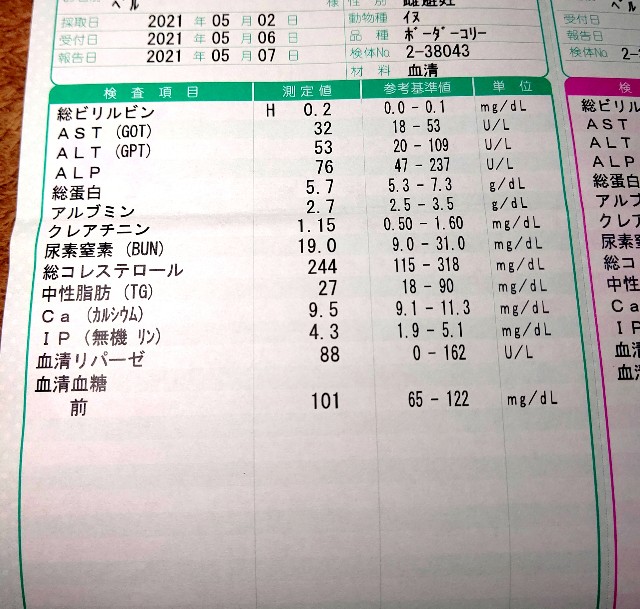 ベル 様 性別 雌避妊
採取日 2021 年 05 月 02 日 動物種 イヌ
受付日 2021 年 05 月 06 日 品種 ボーダーコリー
報告日 2021 年 05 月 07 日 検体No 2-38043
材料 血清
検査項目 測定値 参考基準値 単位
総ビリルビン H 0.2 0.0 - 0.1 mg/dL
AST (GOT) 32 18 - 53 U/L
ALT (GPT) 53 20 - 109 U/L
ALP 76 47 - 237 U/L
総蛋白 5.7 5.3 - 7.3 g/dL
アルブミン 2.7 2.5 - 3.5 g/dL
クレアチニン 1.15 0.50 - 1.60 mg/dL
尿素窒素 (BUN) 19.0 9.0 - 31.0 mg/dL
総コレステロール 244 115 - 318 mg/dL
中性脂肪 (TG) 27 18 - 90 mg/dL
Ca (カルシウム) 9.5 9.1 - 11.3 mg/dL
IP (無機リン) 4.3 1.9 - 5.1 mg/dL
血清リパーゼ 88 0 - 162 U/L
血清血糖
前 101 65 - 122 mg/dL
ベル
受付日
報告日
検体No 2-
検
総ビリル
AST
ALT
ALP
総蛋白
アルブ
クレア
尿素
総コ
中性
Ca
IP
血清
血清